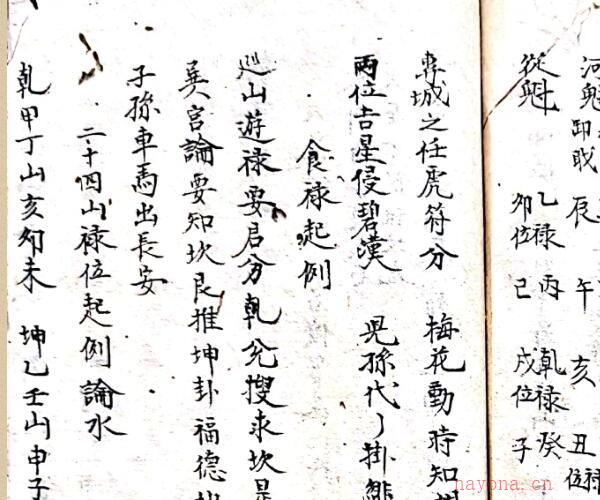 河魁 卯戌 辰 午 亥 丑位禄
從魁 乙禄卯位 丙 己 乾禄戌位 癸 子
專城之任虎符分 梅花動時知
兩位吉星侵碧漢 兒孫代々掛緋
食禄起例
巡山遊禄要君分 乾兊搜求坎艮
巽宮論要知坎艮推坤卦福德
子孫車馬出長安
二十四山禄位起例論水
乾甲丁山亥卯未 坤乙壬山申子
hayona.cn